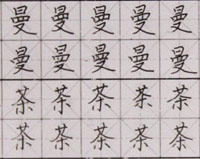 曼曼曼曼曼
曼曼曼曼曼
茶茶茶茶茶
茶茶茶茶茶